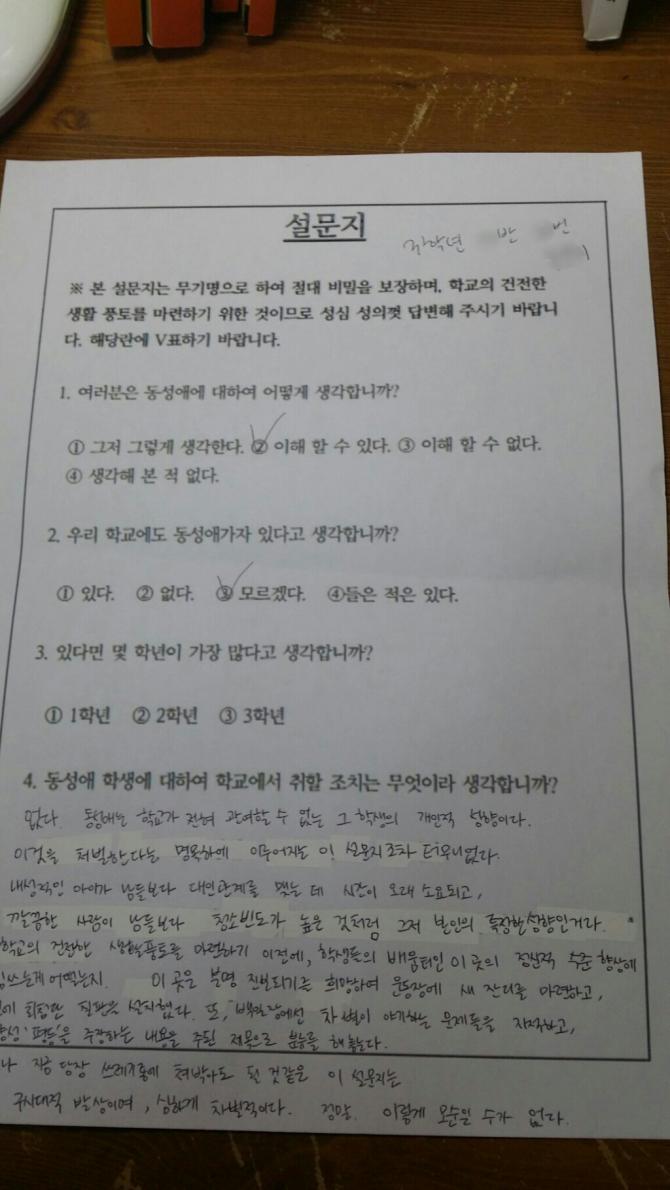 설문지
학년 반 번
※ 본 설문지는 무기명으로 하여 절대 비밀을 보장하며, 학교의 건전한
생활 풍토를 마련하기 위한 것이므로 성심 성의껏 답변해 주시기 바랍니
다. 해당란에 V표하기 바랍니다.
1. 여러분은 동성애에 대하여 어떻게 생각합니까?
① 그저 그렇게 생각한다. ② 이해 할 수 있다. ③ 이해 할 수 없다.
④ 생각해 본 적 없다.
2. 우리 학교에도 동성애가자 있다고 생각합니까?
① 있다. ② 없다. ③ 모르겠다. ④들은 적은 있다.
3. 있다면 몇 학년이 가장 많다고 생각합니까?
① 1학년 ② 2학년 ③ 3학년
4. 동성애 학생에 대하여 학교에서 취할 조치는 무엇이라 생각합니까?
없다. 동성애는 학교가 전혀 관여할 수 없는 그 학생의 개인적 성향이다.
이것을 처벌한다는 명목하에 이루어지는 이 설문지조차 터무니없다.
내성적인 아이가 남들보다 대인관계를 맺는 데 시간이 오래 소요되고,
깔끔한 사람이 남들보다 청소빈도가 높은 것처럼 그저 본인의 특정한 성향인거라.
학교의 건전한 생활풍토를 마련하기 이전에, 학생들의 배움터인 이 곳의 정신적 수준 향상에
힘쓰는게 어떻는지. 이 곳은 분명 진보되기를 희망하여 운동장에 새 잔디를 마련하고,
에 최첨단 칠판을 설치했다. 또, 백일장에선 차별이 야기하는 문제들을 지적하고,
'평등'을 주장하는 내용을 주된 제목으로 분류를 해놓는다.
나 지금 당장 쓰레기통에 쳐박아도 될 것같은 이 설문지는
구시대적 발상이며, 심하게 차별적이다. 정말. 이렇게 모순일 수가 없다.